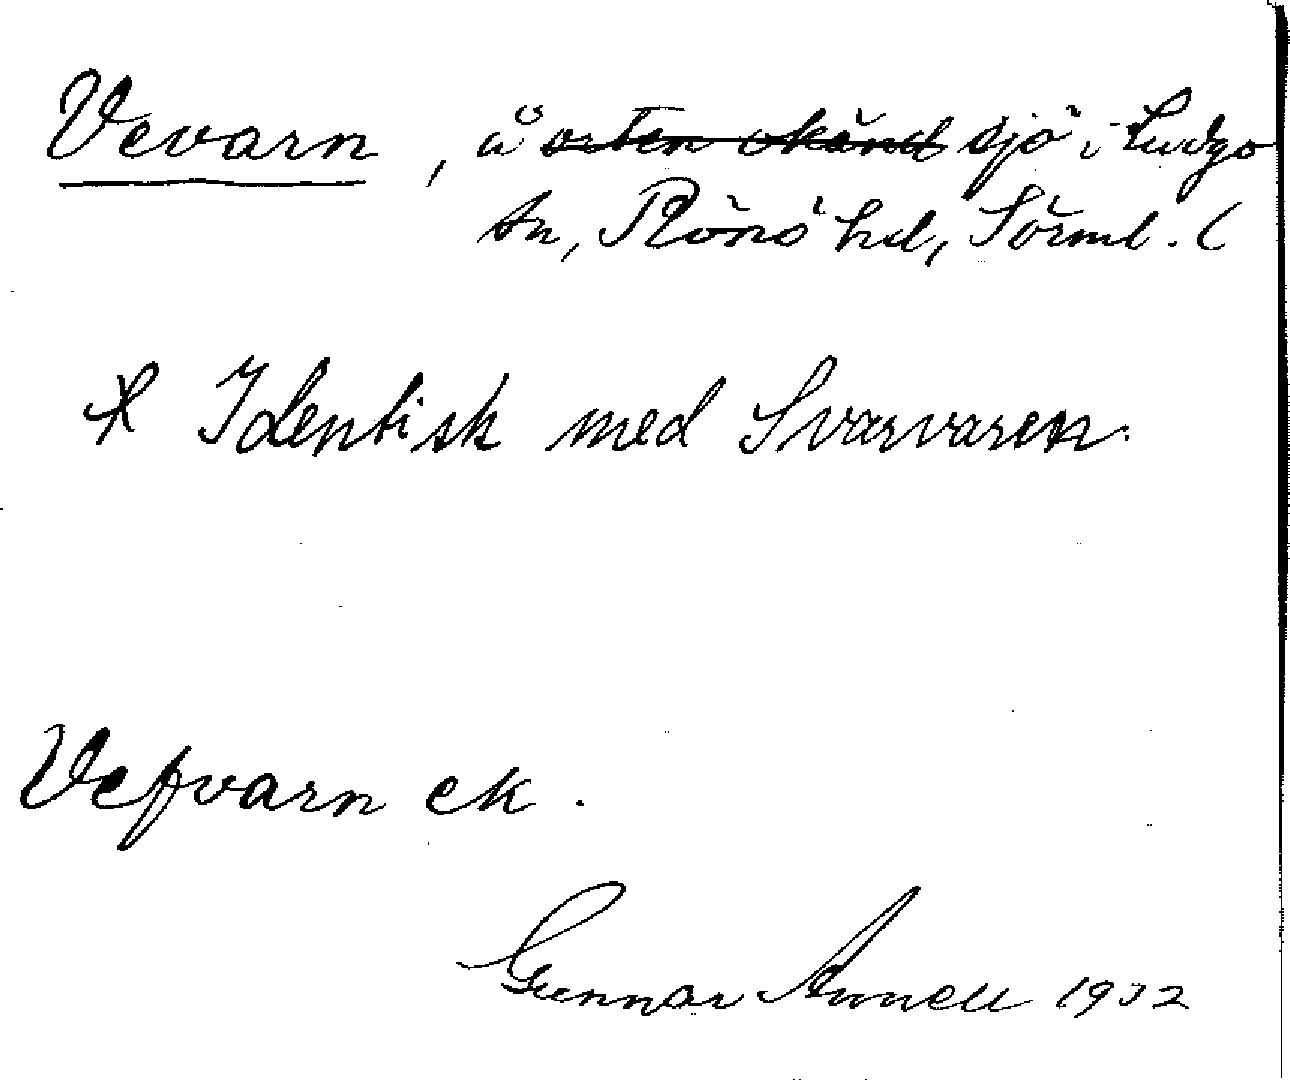 Vevarn, å orten okänd sjö i Ludgo
sn, Rönö hd, Sörml. (
* Identisk med Svarvaren.
Vefvarn ek.
Gunnar Annell 1932